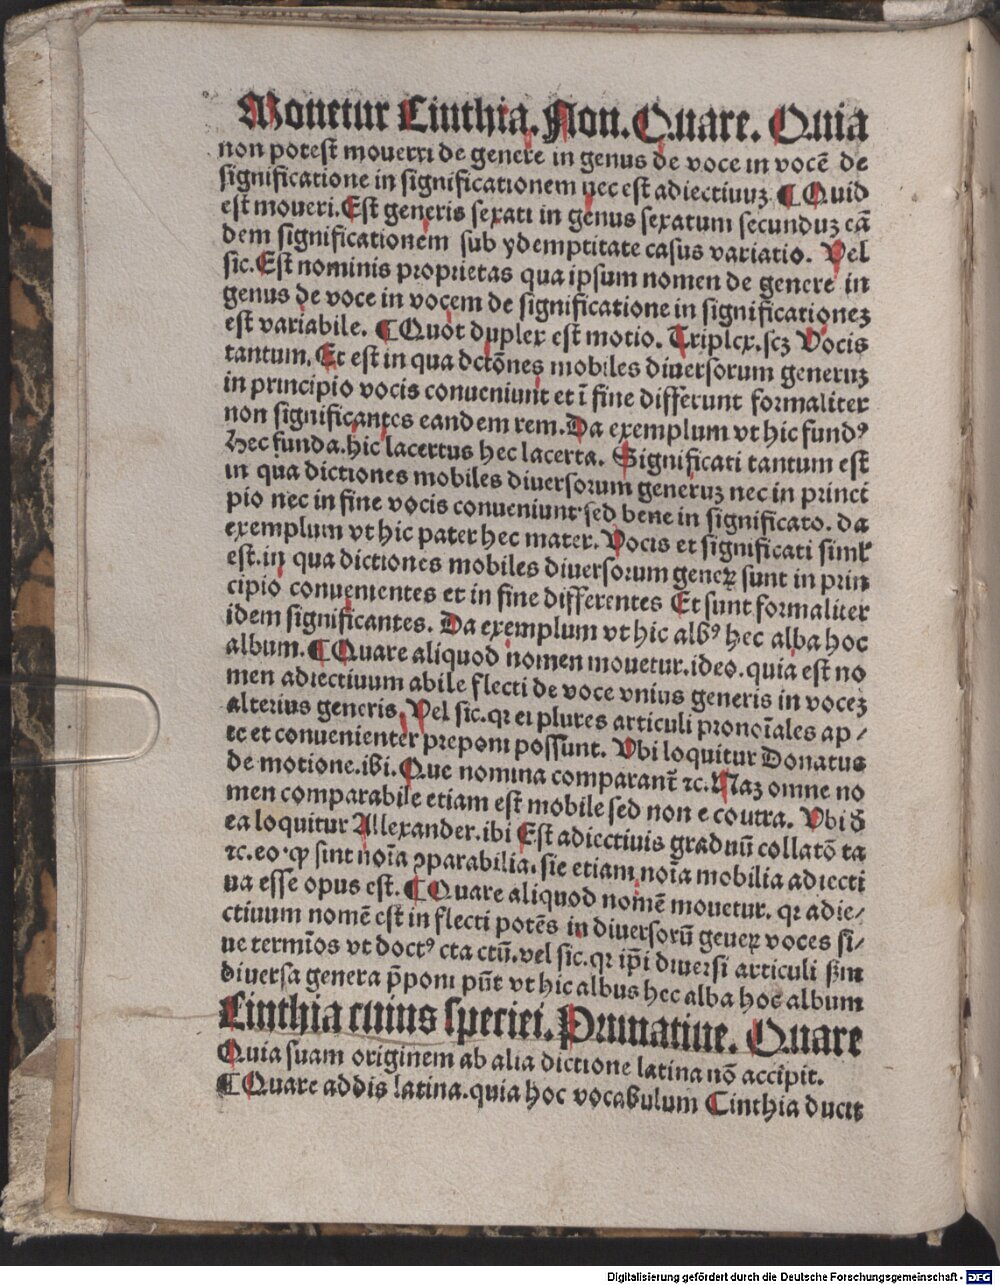 Mouetur Cinthia. Non. Quare. Quia
non potest mouerri de genere in genus de voce in vocē de
significatione in significationem nec est adiectiuuꝫ ¶ Quid
est moueri. Est generis sexati in genus sexatum secunduꝫ eā
dem significationem sub ydemptitate casus variatio. Vel
sic. Est nominis proprietas qua ipsum nomen de genere in
genus de voce in vocem de significatione in significationeꝫ
est variabile. ¶ Quot duplex est motio. Triplex. scꝫ Vocis
tantum. Et est in qua dctōnes mobiles diuersorum generuꝫ
in principio vocis conueniunt et ī fine differunt formaliter
non significantes eandem rem. Da exemplum vt hic fundꝰ
Hec funda. hic lacertus hec lacerta. Significati tantum est
in qua dictiones mobiles diuersorum generuꝫ nec in princi
pio nec in fine vocis conueniunt sed bene in significato. da
exemplum vt hic pater hec mater. Vocis et significati simĺ
est. in qua dictiones mobiles diuersorum geneꝝ sunt in prin
cipio conuenientes et in fine differentes Et sunt formaliter
idem significantes. Da exemplum vt hic albꝰ hec alba hoc
album. ¶ Quare aliquod nomen mouetur. ideo. quia est no
men adiectiuum abile flecti de voce vnius generis in voceꝫ
alterius generis. Vel sic. qꝛ ei plures articuli pronoīales ap⸗
te et conuenienter preponi possunt. Vbi loquitur Donatus
de motione. ibi. Que nomina comparant̄ ꝛc. Naꝫ omne no
men comparabile etiam est mobile sed non e contra. Vbi d̄
ea loquitur Allexander. ibi Est adiectiuis graduū collatō ta
ꝛc. eo ꝙ sint noīa ꝯparabilia. sie etiam noīa mobilia adiecti
ua esse opus est. ¶ Quare aliquod nomē mouetur. qꝛ adie⸗
ctiuum nomē est in flecti potēs in diuersorū geneꝝ voces si⸗
ue termīos vt doctꝰ cta ctū. vel sic. qꝛ ip̄i diuersi articuli ẜm
diuersa genera p̄poni pn̄t vt hic albus hec alba hoc album
Cinthia cuius speciei. Primatiue. Quare
Quia suam originem ab alia dictione latina nō accipit.
¶ Quare addis latina. quia hoc vocabulum Cinthia ducit
Digitalisierung gefördert durch die Deutsche Forschungsgemeinschaft - DFG